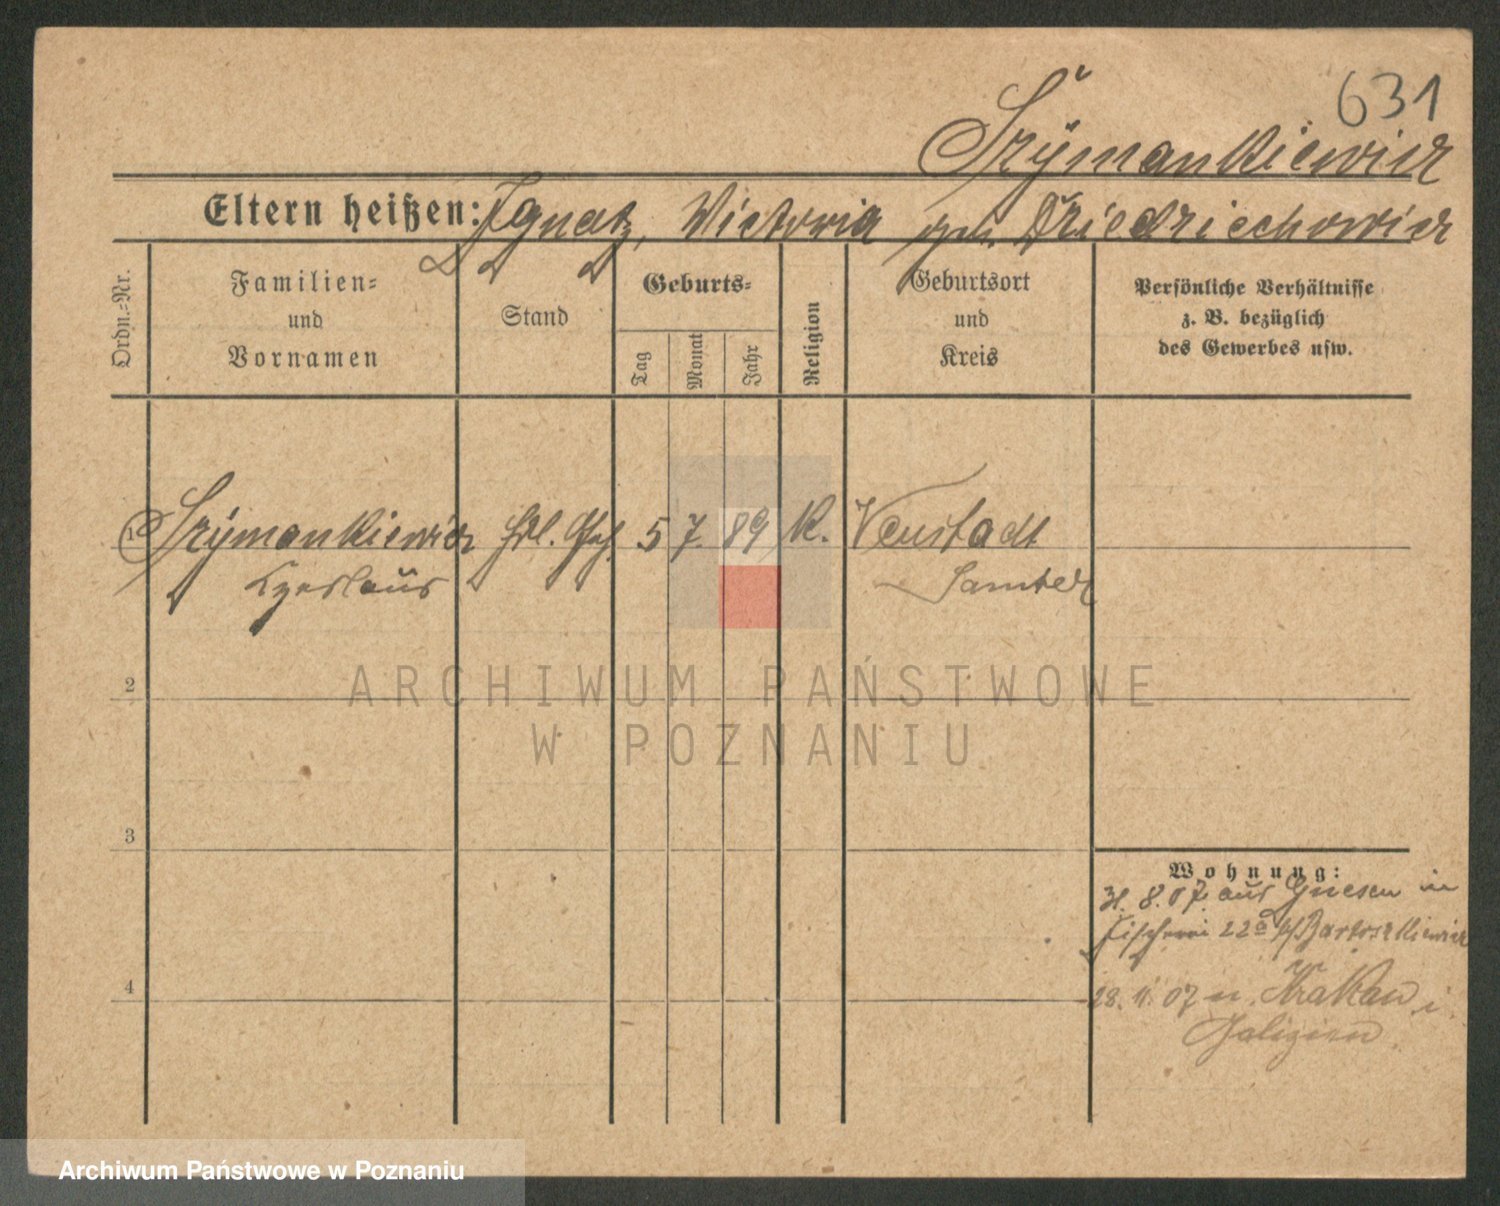 631
Szymankiewicz
Eltern heißen: Ignatz, Victoria geb. Dziedziechowicz
Ordn.-Nr.
Familien-
und
Vornamen
Stand
Geburts-
Tag
Monat
Jahr
Religion
Geburtsort
und
Kreis
Persönliche Verhältnisse
z. B. bezüglich
des Gewerbes usw.
1 Szymankiewicz Hdl. Geh. 5 7. 89 K. Neustadt
Czeslaus Samter
2
3
4
Wohnung:
31. 8. 07. aus Gnesen in
Fischerei 22a b/Bartoszkiewicz
28. 11. 07 n. Krakau i.
Galizien.
ARCHIWUM PAŃSTWOWE
W POZNANIU
Archiwum Państwowe w Poznaniu